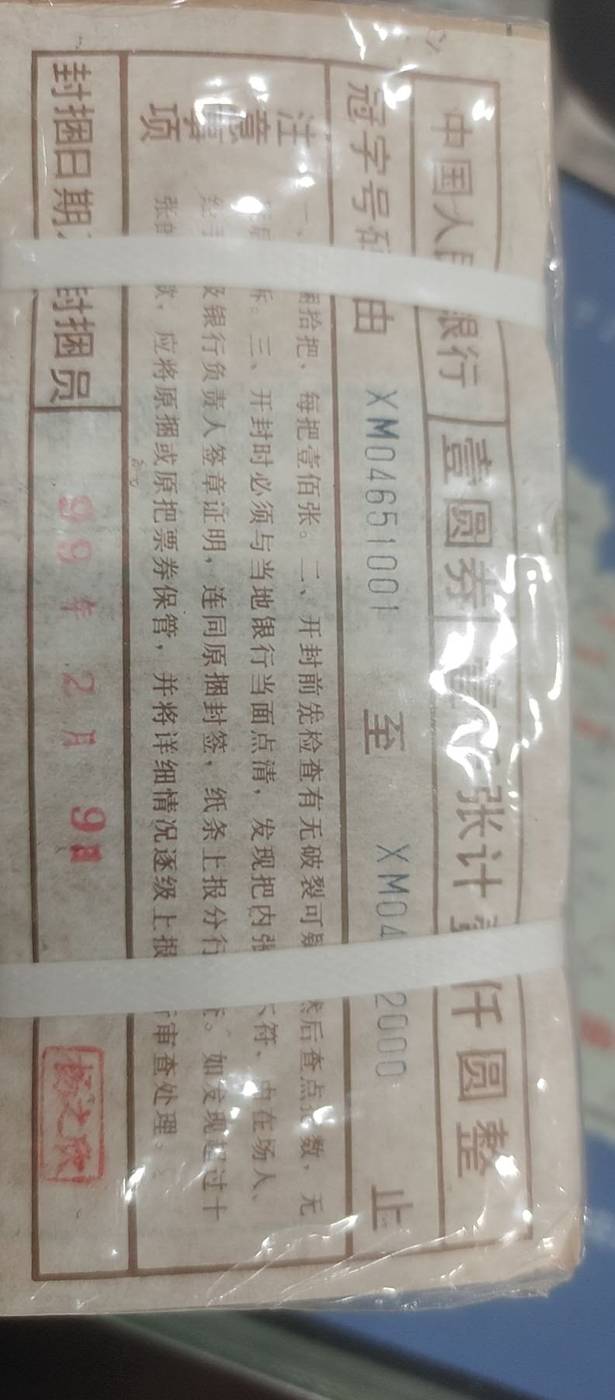 中国人民银行 壹圆券 张计 仟圆整
冠字号码 由 XM04651001 至 XM04 2000 止
注意事项
一、 捆拾把、每把壹佰张。二、开封前先检查有无破裂可疑 然后查点 数，无
三、开封时必须与当地银行当面点清，发现把内张 不符，由在场人、
经手 及银行负责人签章证明，连同原捆封签，纸条上报分行 。如发现超过十
张的 款，应将原捆或原把票券保管，并将详细情况逐级上报 行审查处理。
封捆日期、封捆员 99年2月9日